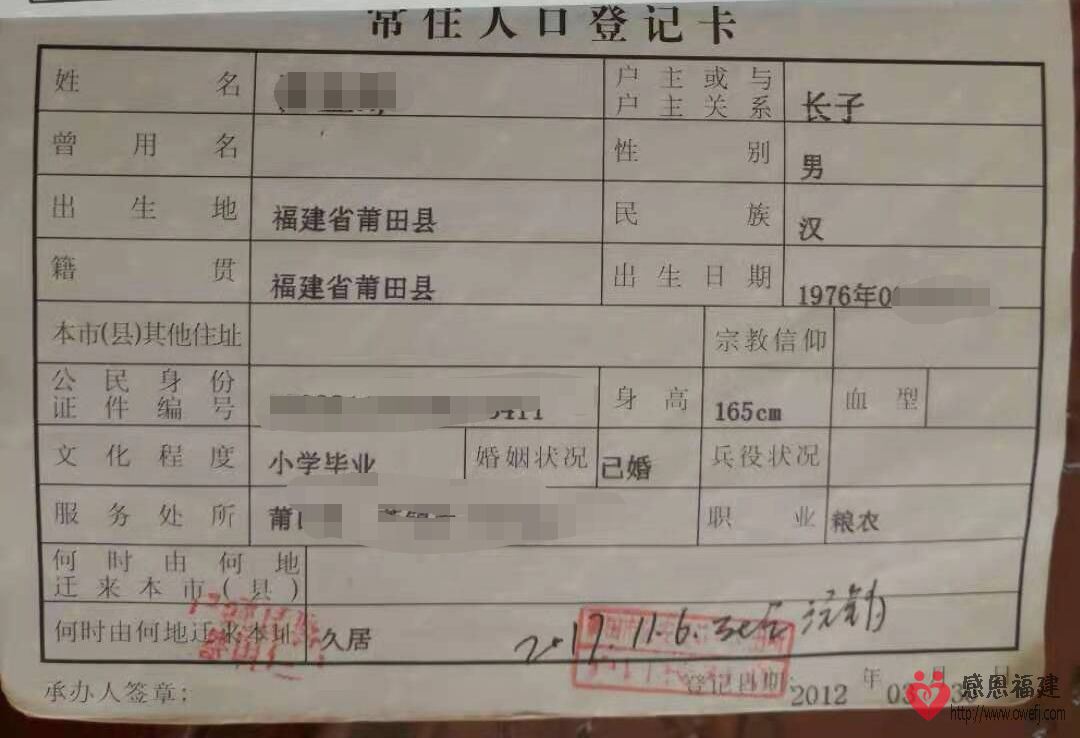 常住人口登记卡
姓名
户主或与
户主关系
长子
曾用名
性别
男
出生地
福建省莆田县
民族
汉
籍贯
福建省莆田县
出生日期
1976年0
本市(县)其他住址
宗教信仰
公民身份
证件编号
身高
165cm
血型
文化程度
小学毕业
婚姻状况
已婚
兵役状况
服务处所
莆
职业
粮农
何时由何地
迁来本市(县)
何时由何地迁来本址
久居
2017.11.6.死亡注销
承办人签章:
登记日期
2012年03月30日
感恩福建
http://www.owefj.com/